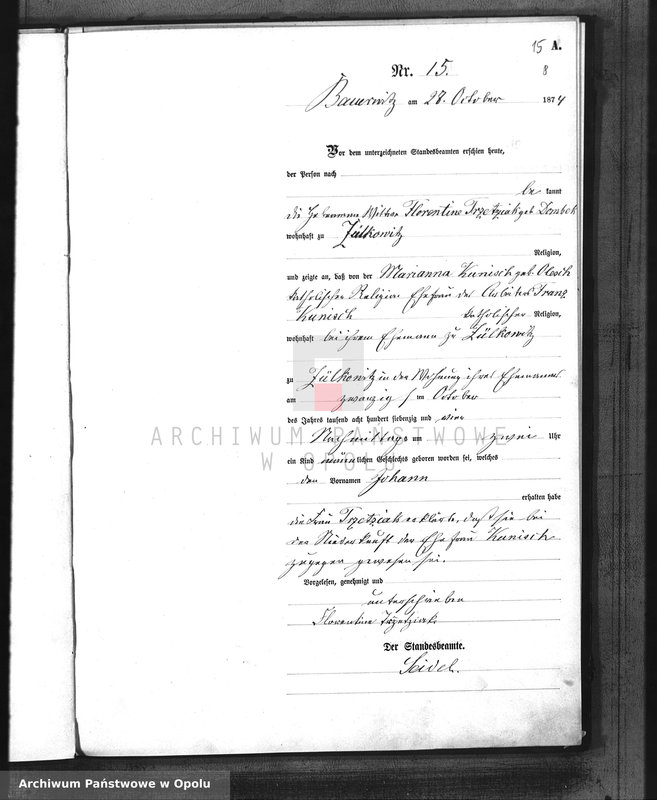 15 A.
8
Nr. 15.
Bauerwitz am 28. October 1874
Vor dem unterzeichneten Standesbeamten erschien heute,
der Person nach
be kannt
die Hebamme Wittwe Florentine Trzetziak geb. Dombek
wohnhaft zu Zülkowitz
Religion,
und zeigte an, daß von der Marianna Kunisch geb.
katholischer Religion Ehefrau des Arbeiters Franz
Kunisch katholischer Religion,
wohnhaft bei ihrem Ehemann zu Zülkowitz
zu Zülkowitz in der Wohnung ihres Ehemannes
am zwanzig October
des Jahres tausend acht hundert siebenzig und vier
Nachmittags um zwei Uhr
ein Kind männlichen Geschlechts geboren worden sei, welches
den Vornamen Johann
erhalten habe
die Frau Trzetziak erklärte, daß sie bei
der Niederkunft der Ehefrau Kunisch
zugegen gewesen sei.
Vorgelesen, genehmigt und
unterschrieben
Florentine Trzetziak
Der Standesbeamte.
Seidel.
ARCHIWUM PAŃSTWOWE
W OPOLU
Archiwum Państwowe w Opolu